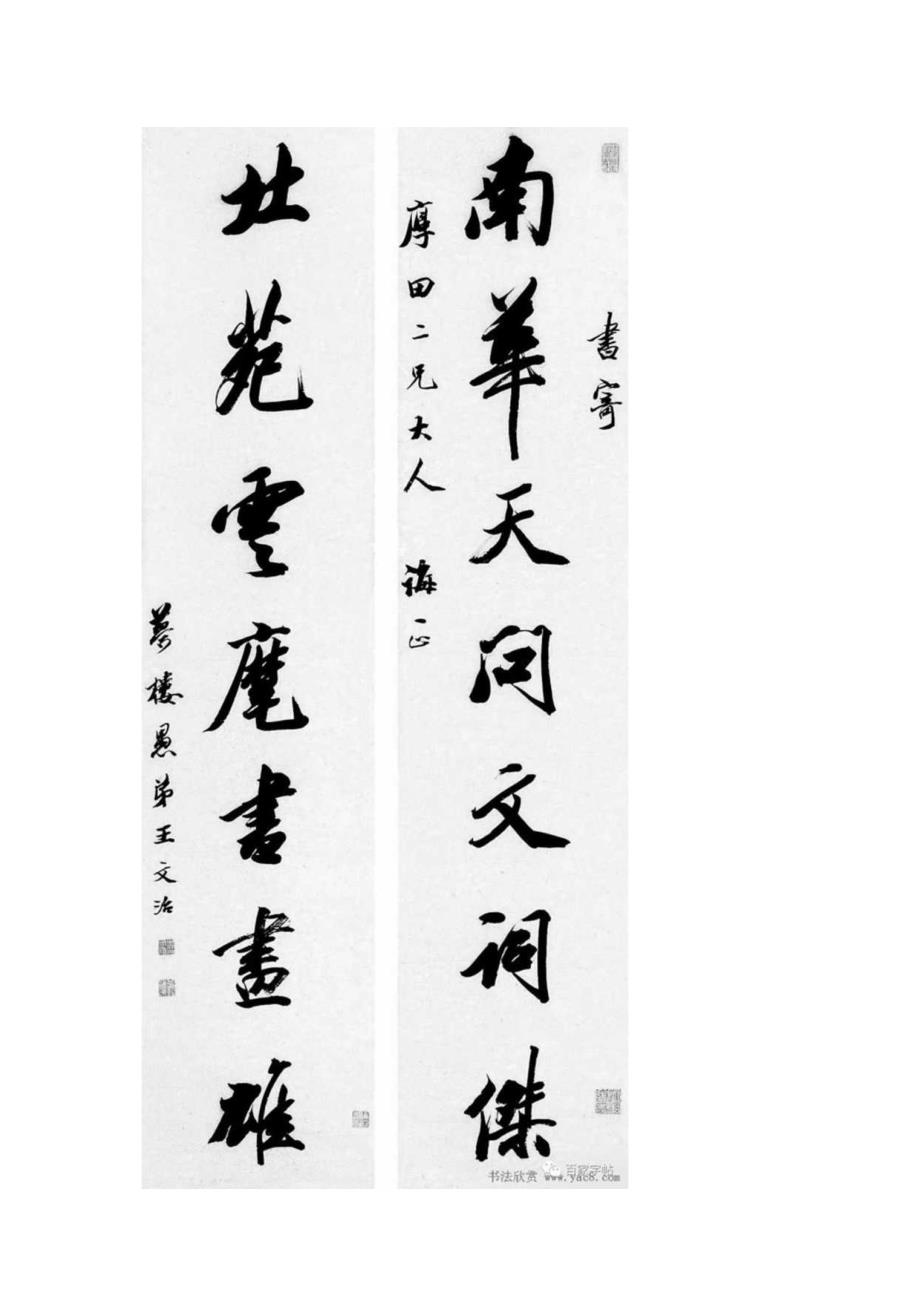 書寄
南華天問文詞傑
厚田二兄大人 誨正
北苑雲麾書畫雄
夢樓愚弟王文治
百家字帖
书法欣赏 www.yac8.com